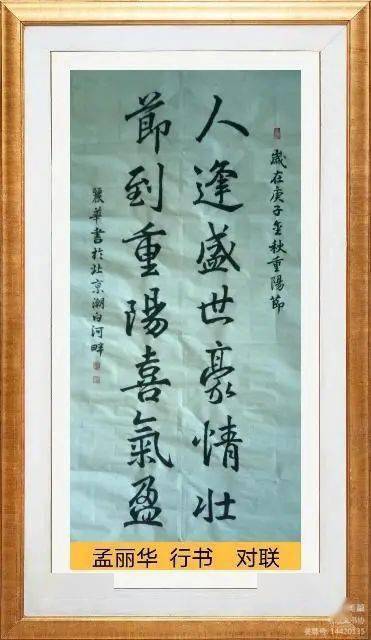 歲在庚子金秋重陽節
人逢盛世豪情壯
節到重陽喜氣盈
麗華書於北京潮白河畔
孟丽华 行书 对联